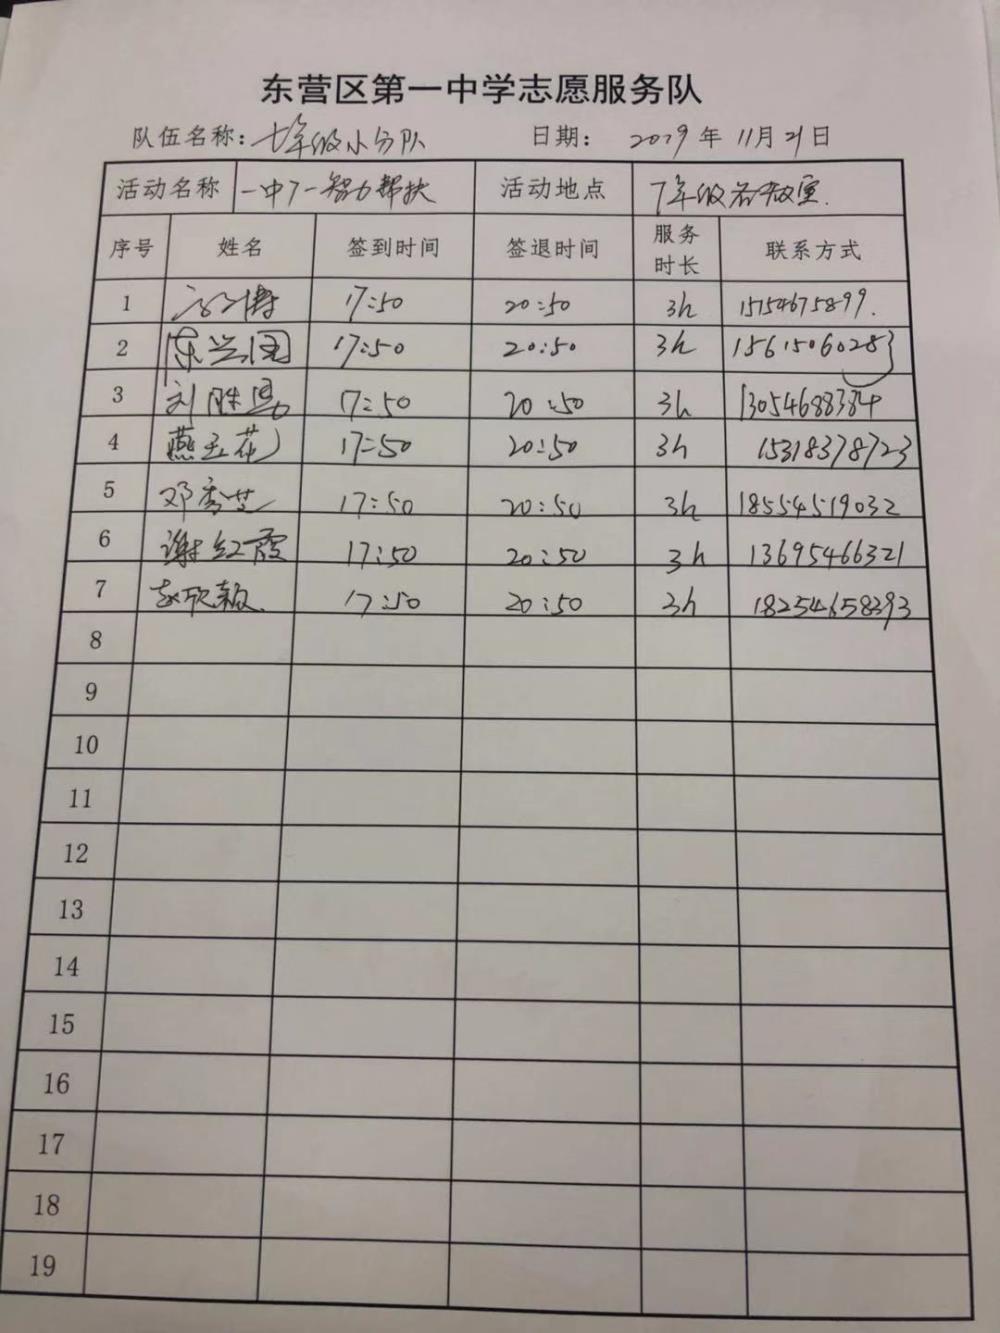 东营区第一中学志愿服务队
队伍名称：七年级小分队 日期： 2019年11月21日
活动名称 一中7一智力帮扶 活动地点 7年级各教室.
序号 姓名 签到时间 签退时间 服务时长 联系方式
1 17:50 20:50 3h 15154675899.
2 陈兰国 17:50 20:50 3h 15615060283
3 刘胜 17:50 20:50 3h 13054688384
4 燕玉花 17:50 20:50 3h 15318378723
5 邓秀芝 17:50 20:50 3h 18554519032
6 谢红霞 17:50 20:50 3h 13695466321
7 赵欣颖 17:50 20:50 3h 18254658393
8
9
10
11
12
13
14
15
16
17
18
19